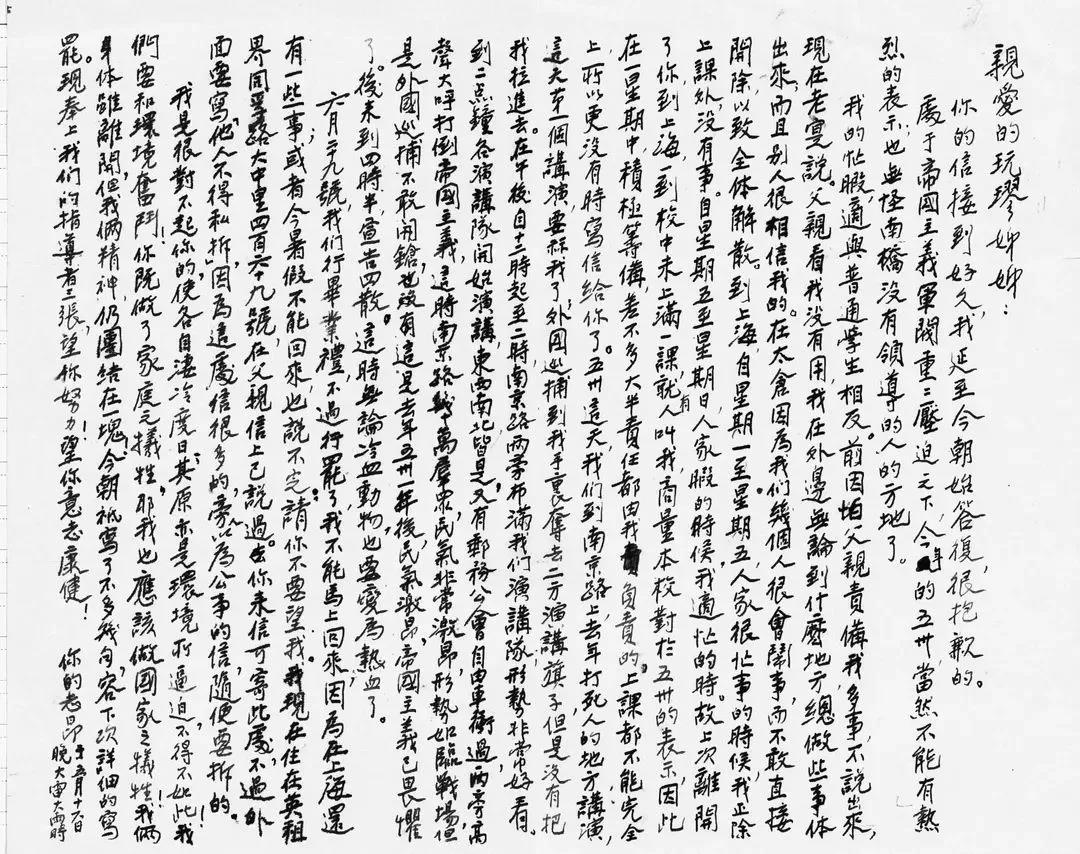 親愛的玩璆姊姊：
你的信接到好久，我延至今朝始答復，很抱歉的。
處于帝國主義軍閥重重壓迫之下，今年的五卅，當然不能有熱
烈的表示，也無怪南橋沒有領導的人的方地了。
我的忙暇，適與普通學生相反。前因怕父親責備我多事，不說出來，
現在老實說。父親看我沒有用，我在外邊無論到什麼地方，總做些事体
出來，而且別人很相信我的。在太倉因為我们幾個人很會鬧事，而不敢直接
開除，以致全体解散。到上海，自星期一至星期五人家很忙事的時候，我止除
上課外，沒有事。自星期五至星期日，人家有暇的時候，我適忙的時。故上次離開
了你，到上海，一到校中未上滿一課，就人叫我，商量本校對於五卅的表示，因此
在一星期中積極籌備，差不多大半責任都由我負責的。上課都不能完全
上，所以更没有時寫信給你了。五卅這天，我们到南京路上去年打死人的地方講演，
這天第一個講演要算我了，外國巡捕到我手裏奪去二方演講旗子，但是沒有把
我拉進去。在午後自十二時起至二時，南京路兩旁布滿我们演講隊，形勢非常好看。
到二点鐘各演講隊開始演講，東西南北皆是，又有郵務公會自由車衝過，兩旁高
聲大呼打倒帝國主義，這時南京路幾萬羣眾民氣非常激昂，形勢如臨戰場，但
是外國巡捕不敢開鎗也沒有，這是去年五卅一年後，民氣激昂，帝國主義已畏懼
了。後來到四時半，宣告四散。這時無論冷血動物，也要變為熱血了。
六月二九號，我们行畢業禮，不過行罷了，我不能馬上回來，因為在上海還
有一些事，或者今暑假不能回來也說不定，請你不要望我。我現在住在英租
界同孚路大中里四百六十九號，在父親信上已說過。你来信可寄此處，不過外
面要寫「他人不得私拆」，因為這處信很多的，旁以為公事的信，隨便要拆的。
我是很對不起你的，使各自淒冷度日，其原亦是環境所逼迫，不得不如此！我
們要和環境奮鬥！你既做了家庭之犧牲耶，我也應該做國家之犧牲！我倆
身体雖離開，但我倆精神仍團結在一塊！今朝祗寫了不多幾句，容下次詳細的寫
罷。現奉上我们的指導者三張，望你努力！望你意志康健！
你的老昂 于五月十六日
晚大雷大雨時